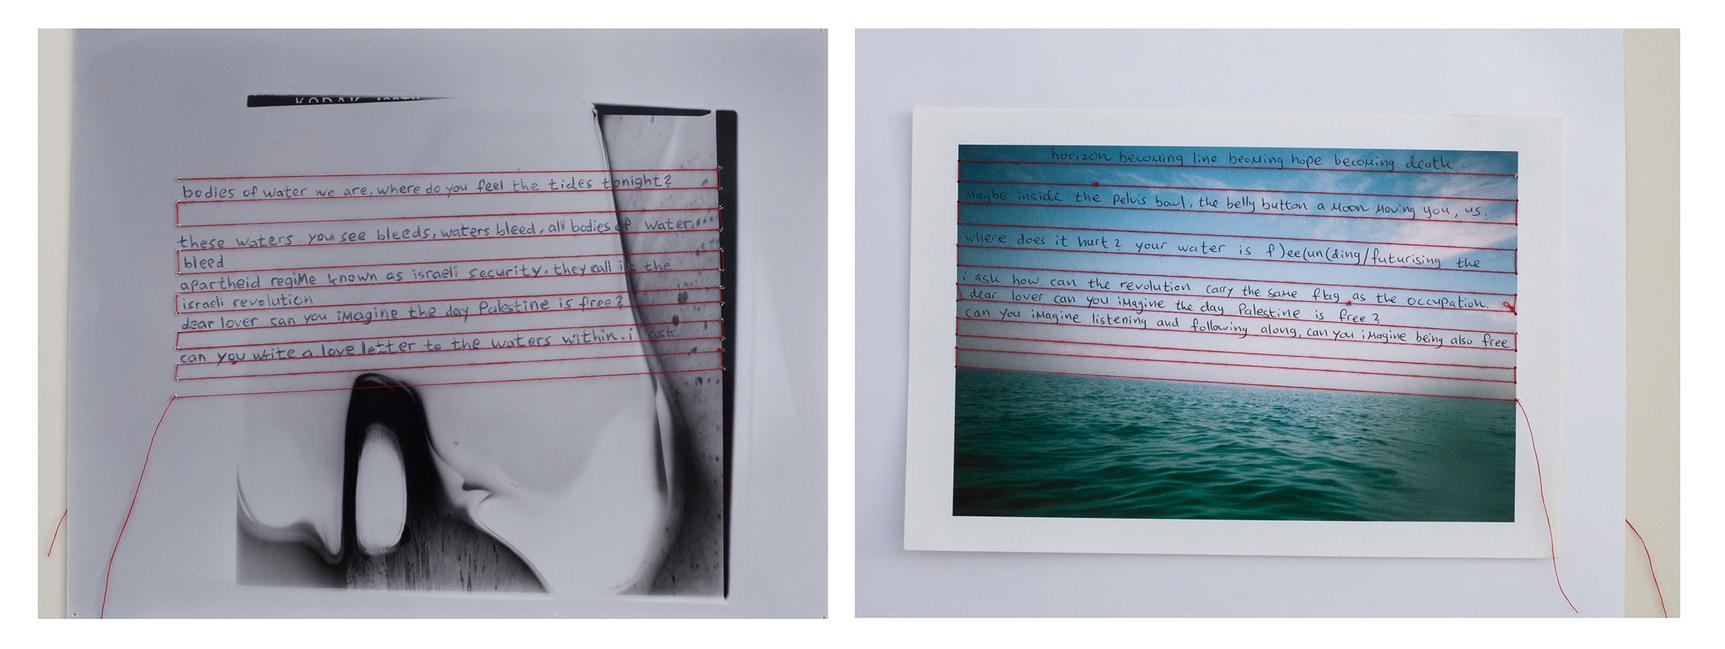 KODAK
bodies of water we are. where do you feel the tides tonight?
these waters you see bleeds, waters bleed, all bodies of water
bleed
apartheid regime known as israeli security. they call it the
israeli revolution
dear lover can you imagine the day Palestine is free?
can you write a love letter to the waters within. i ask.
horizon becoming line becoming hope becoming death
Maybe inside the pelvis bowl, the belly button a moon moving you, us.
where does it hurt? your water is f)ee(un(ding/futurising the
i ask how can the revolution carry the same flag as the occupation.
dear lover can you imagine the day Palestine is free?
can you imagine listening and following along, can you imagine being also free